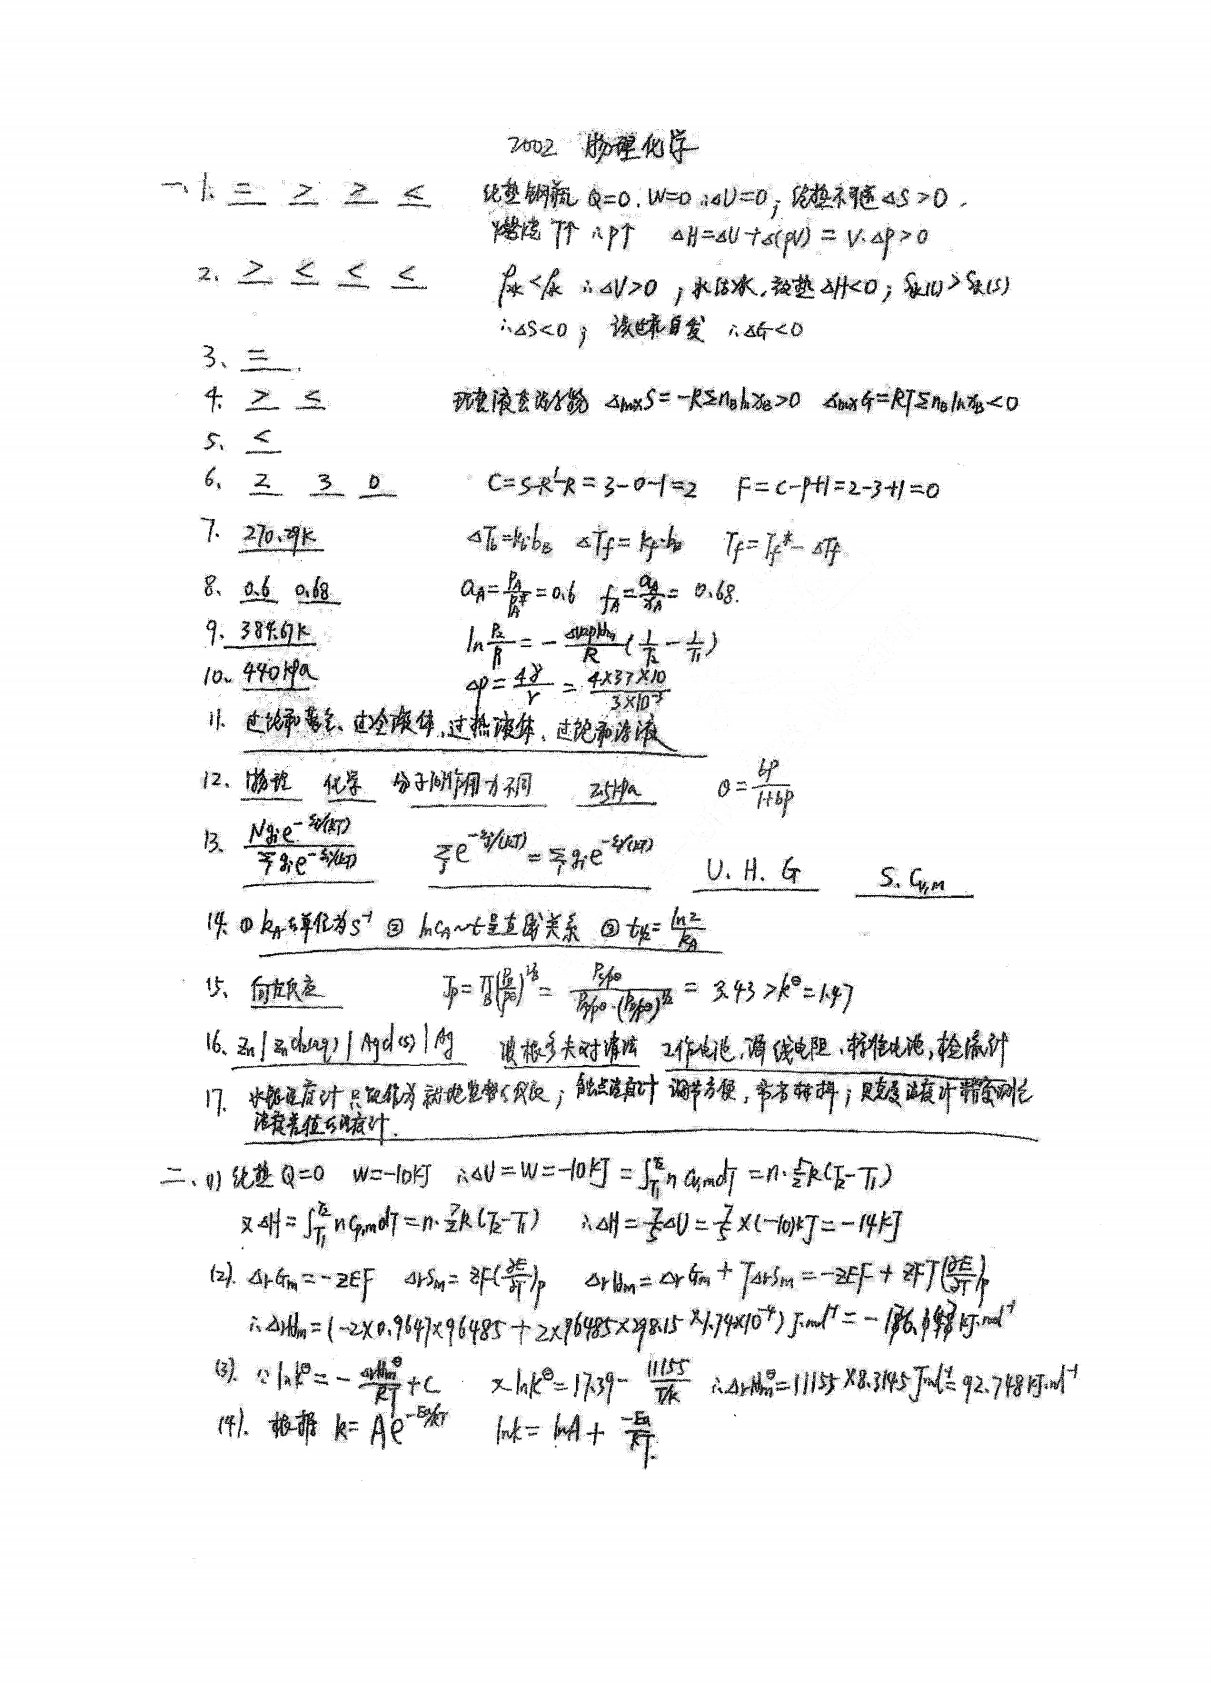 2002 物理化学
一、1. = > > < 绝热钢瓶 Q=0. W=0 ∴ΔU=0; 绝热不可逆 ΔS>0.
燃烧 T↑ ∴P↑ ΔH=ΔU+Δ(pV)=V·Δp>0
2、 > < < < ρ冰<ρ水 ∴ΔV>0; 水结冰,放热 ΔH<0; S水(l)>S冰(s)
∴ΔS<0; 该过程自发 ∴ΔG<0
3、 =
4. > < 理想液态混合物 ΔmixS=-RΣnBlnxB>0 ΔmixG=RTΣnBlnxB<0
5、 <
6、 2 3 0 C=S-R'-R=3-0-1=2 F=C-P+1=2-3+1=0
7. 270.29K ΔTb=kb·bB ΔTf=kf·bB Tf=Tf*-ΔTf
8、 0.6 0.68 aA=PA/PA*=0.6 fA=aA/xA=0.68.
9、 384.67K ln P2/P1=-ΔvapHm/R(1/T2-1/T1)
10、 440kPa Δp=4γ/r=
11. 过饱和蒸气、过冷液体、过热液体、过饱和溶液
12、 物理 化学 分子间作用力不同 25kPa θ=bp/1+bp
13. Ngie^-εi/(kT)/Σi gie^-εi/(kT) Σj e^-εj/(kT)=Σi gie^-εi/(kT) U. H. G S. CV,m
14. ① kA的单位为s⁻¹ ② lncA~t呈直线关系 ③ t½=ln2/kA
15、 向左反应 Jp=ΠB(PB/pθ)^νB= =3.43>kθ=1.47
16、 Zn|ZnCl2(aq)|AgCl(s)|Ag 坡根多夫对消法 工作电池,滑线电阻,标准电池,检流计
17. 水银温度计只能作为 ; 触点温度计 调节方便, ; 贝克曼温度计 精密测定
温度差值的温度计.
二、(1) 绝热 Q=0 W=-10kJ ∴ΔU=W=-10kJ=∫T1T2 nCV,mdT=n·5/2R(T2-T1)
又ΔH=∫T1T2 nCp,mdT=n·7/2R(T2-T1) ∴ΔH=7/5ΔU=7/5×(-10)kJ=-14kJ
(2). ΔrGm=-zEF ΔrSm=zF(∂E/∂T)p ΔrHm=ΔrGm+TΔrSm=-zEF+zFT(∂E/∂T)p
∴ΔrHm=(-2×0.9647×96485+2×96485×298.15×1.74×10⁻⁴)J·mol⁻¹=
(3). ∵lnkθ=-ΔrHmθ/RT+C 又lnkθ=17.39-11155/T/K ∴ΔrHmθ=11155×8.3145J·mol⁻¹=92.748kJ·mol⁻¹
(4). 根据 k=Ae^-Ea/RT lnk=lnA+-Ea/RT.